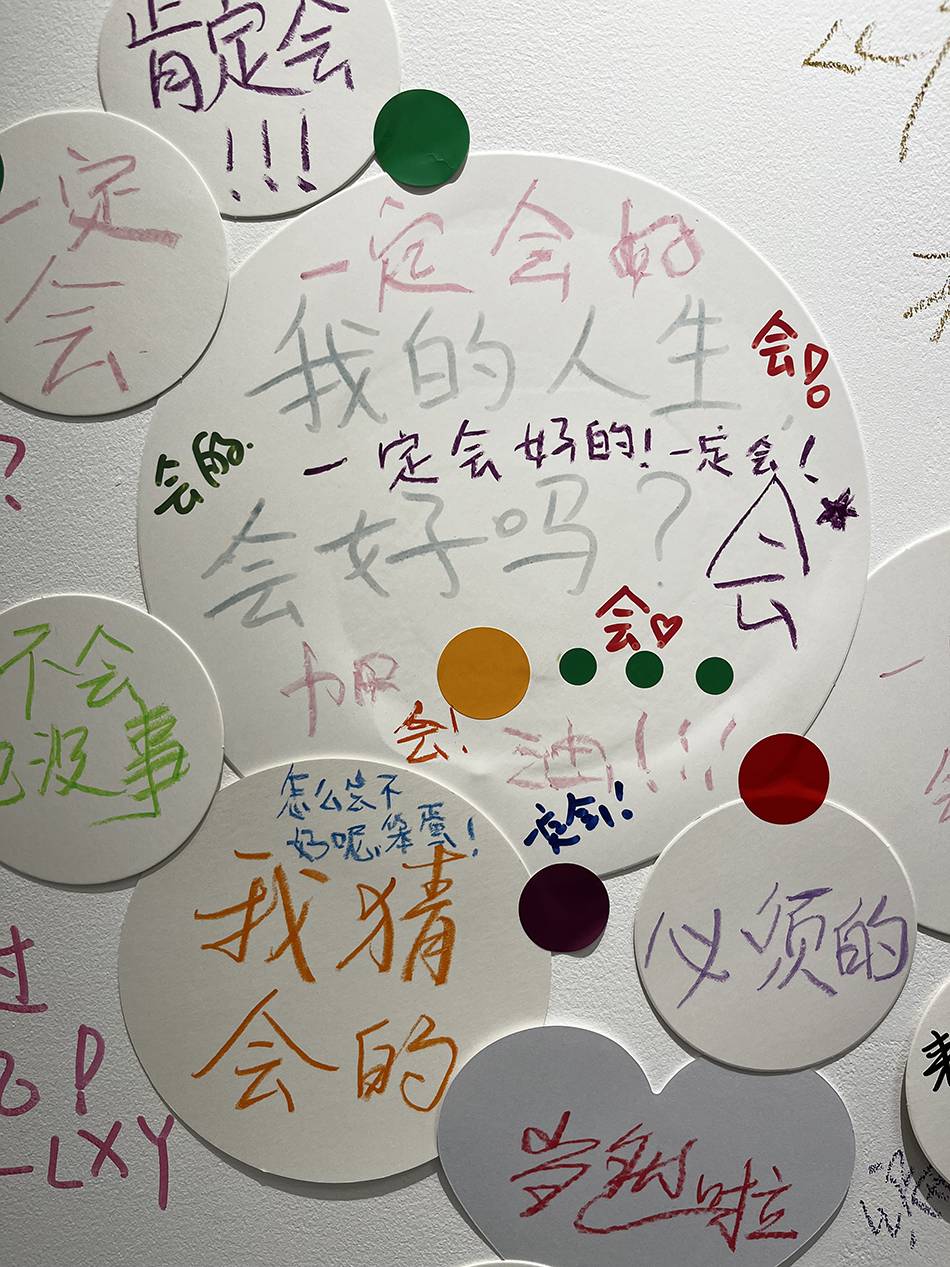 肯定会
!!!
一定
会
一定会好
我的人生
会!
会的.
一定会好的!一定会!
会好吗?
会
会♡
?
加
会!
油!!!
一定会!
不会
也没事
怎么会不
好呢笨蛋!
我猜
会的
必须的
过
LXY
当然啦